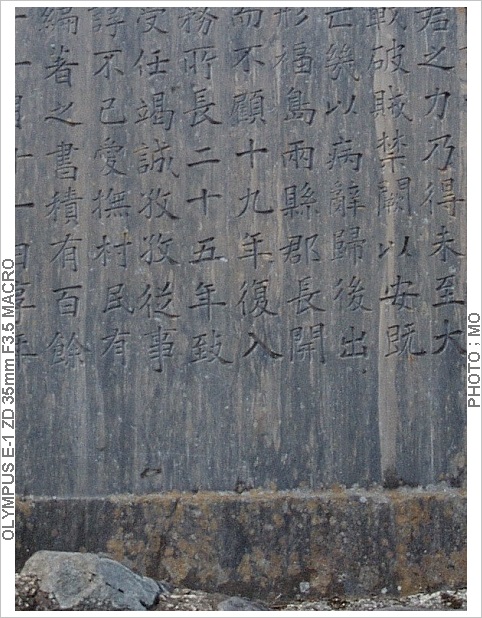 君之力乃得未至大
戰破賊禁闕以安既
亡幾以病辭歸後出
形福島兩縣郡長開
而不顧十九年復入
務所長二十五年致
受任竭誠孜孜從事
諄不已愛撫村民有
編著之書積有百餘
月十一日享年
OLYMPUS E-1 ZD 35mm F3.5 MACRO
PHOTO ; MO